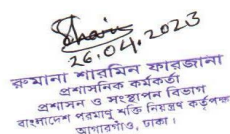 26.04.2023
রুমানা শারমিন ফারজানা
প্রশাসনিক কর্মকর্তা
প্রশাসন ও সংস্থাপন বিভাগ
বাংলাদেশ পরমাণু শক্তি নিয়ন্ত্রণ কর্তৃপক্ষ
আগারগাঁও, ঢাকা।